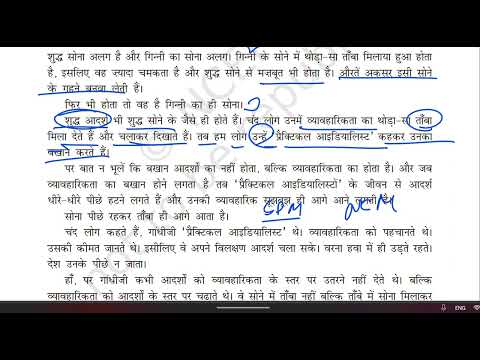 शुद्ध सोना अलग है और गिन्नी का सोना अलग। गिन्नी के सोने में थोड़ा-सा ताँबा मिलाया हुआ होता
है, इसलिए वह ज्यादा चमकता है और शुद्ध सोने से मज़बूत भी होता है। औरतें अकसर इसी सोने
के गहने बनवा लेती हैं।
फिर भी होता तो वह है गिन्नी का ही सोना।
शुद्ध आदर्श भी शुद्ध सोने के जैसे ही होते हैं। चंद लोग उनमें व्यावहारिकता का थोड़ा-सा ताँबा
मिला देते हैं और चलाकर दिखाते हैं। तब हम लोग उन्हें 'प्रैक्टिकल आइडियालिस्ट' कहकर उनका
बखान करते हैं।
पर बात न भूलें कि बखान आदर्शों का नहीं होता, बल्कि व्यावहारिकता का होता है। और जब
व्यावहारिकता का बखान होने लगता है तब 'प्रैक्टिकल आइडियालिस्टों' के जीवन से आदर्श
धीरे-धीरे पीछे हटने लगते हैं और उनकी व्यावहारिक सूझबूझ ही आगे आने लगती है।
सोना पीछे रहकर ताँबा ही आगे आता है।
चंद लोग कहते हैं, गांधीजी 'प्रैक्टिकल आइडियालिस्ट' थे। व्यावहारिकता को पहचानते थे।
उसकी कीमत जानते थे। इसीलिए वे अपने विलक्षण आदर्श चला सके। वरना हवा में ही उड़ते रहते।
देश उनके पीछे न जाता।
हाँ, पर गांधीजी कभी आदर्शों को व्यावहारिकता के स्तर पर उतरने नहीं देते थे। बल्कि
व्यावहारिकता को आदर्शों के स्तर पर चढ़ाते थे। वे सोने में ताँबा नहीं बल्कि ताँबे में सोना मिलाकर
ENG